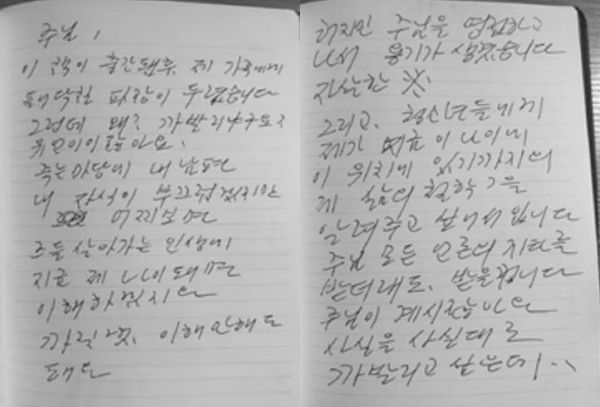 주님,
이 책이 출간됐을 제 가족에게
들이닥칠 파장이 두렵습니다
그런데 왜? 까발리냐구요?
죽는마당에 내 남편
내 자식이 부끄럽겠지만
어찌보면
흐들 살아가는 인생에
지금 제 나이 돼면
이해하겠지요
까짓껏, 이해 안해도
돼요
하지만 주님을 영접하고
나서 용기가 생겼습니다
자살한 X.
그리고, 청소년들에게
제가 지금 이 나이에
이 위치에 있기까지의
제 삶의 철학 그를
알려주고 싶어서 입니다
주님 모든 언론의 지탄을
받더래도, 받을겁니다
주님이 계시잖아요
사실을 사실대로
까발리고 싶은데...